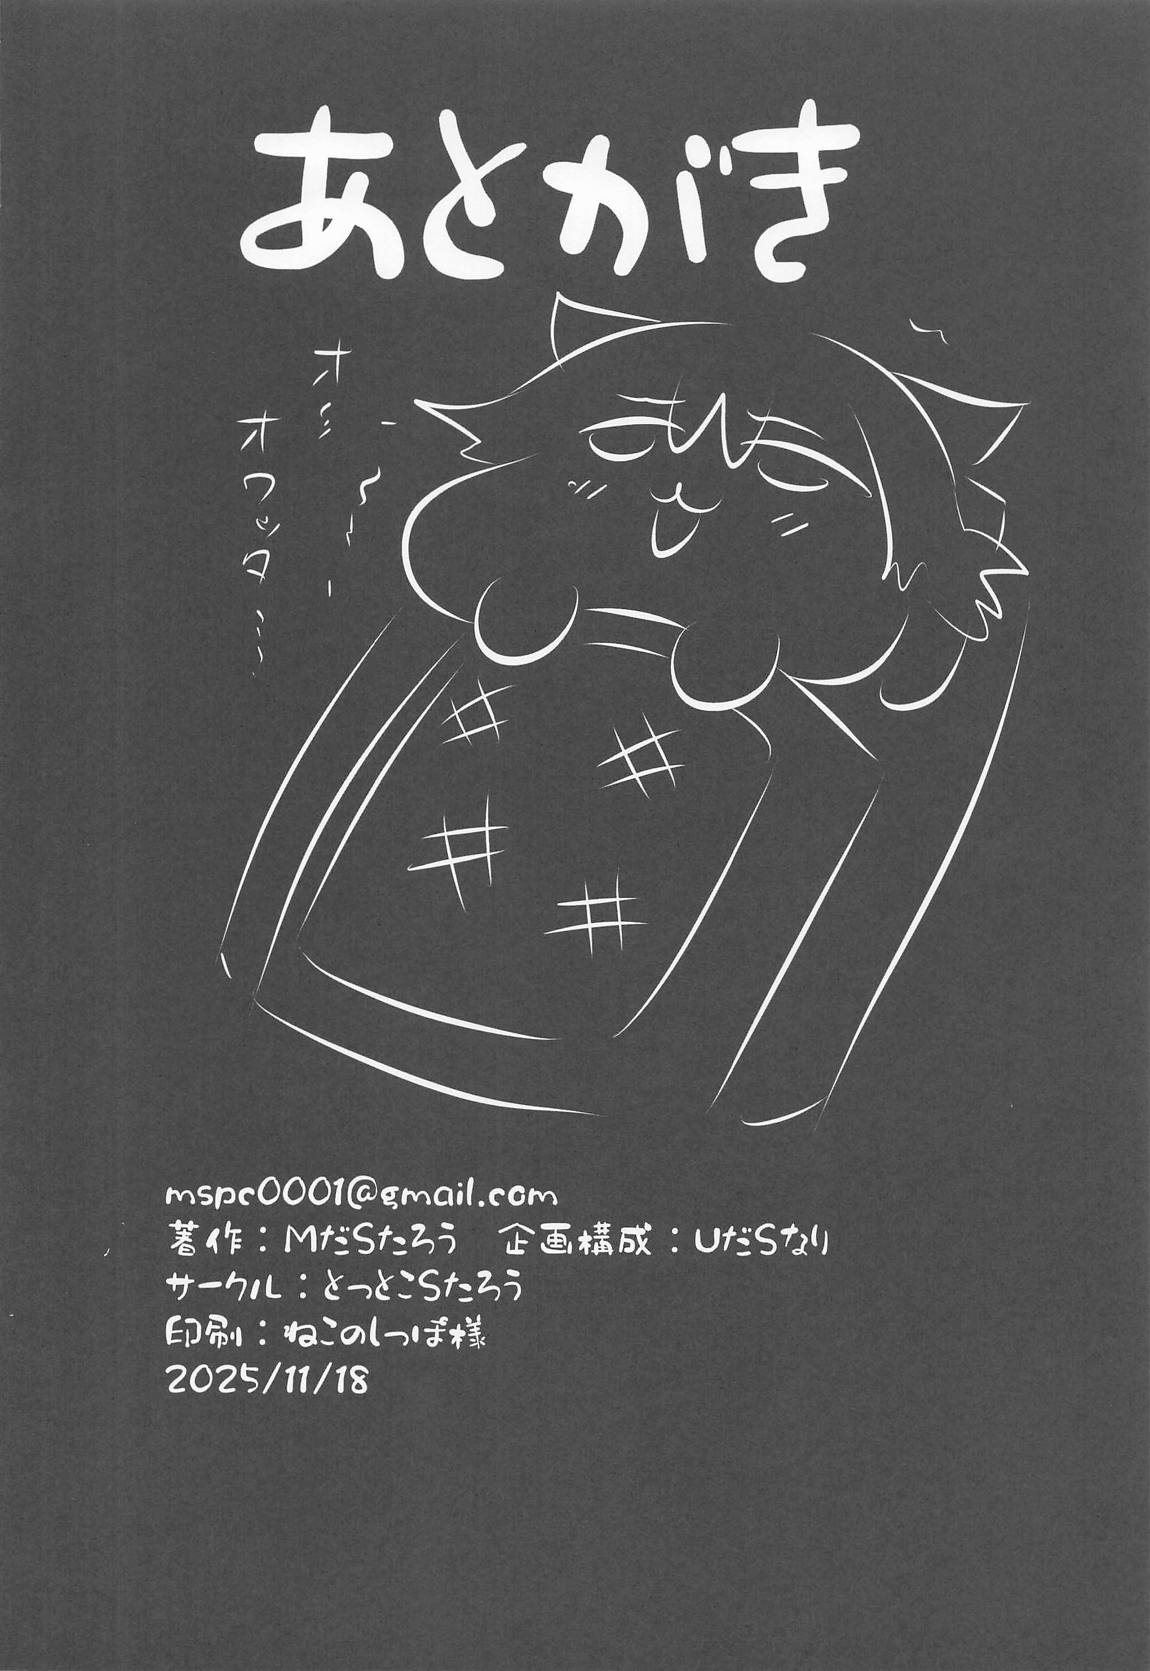 あとがき
オミ
オワッタ…
mspc0001@gmail.com
著作：MだSたろう　企画構成：UだSなり
サークル：とっとこSたろう
印刷：ねこのしっぽ様
2025/11/18